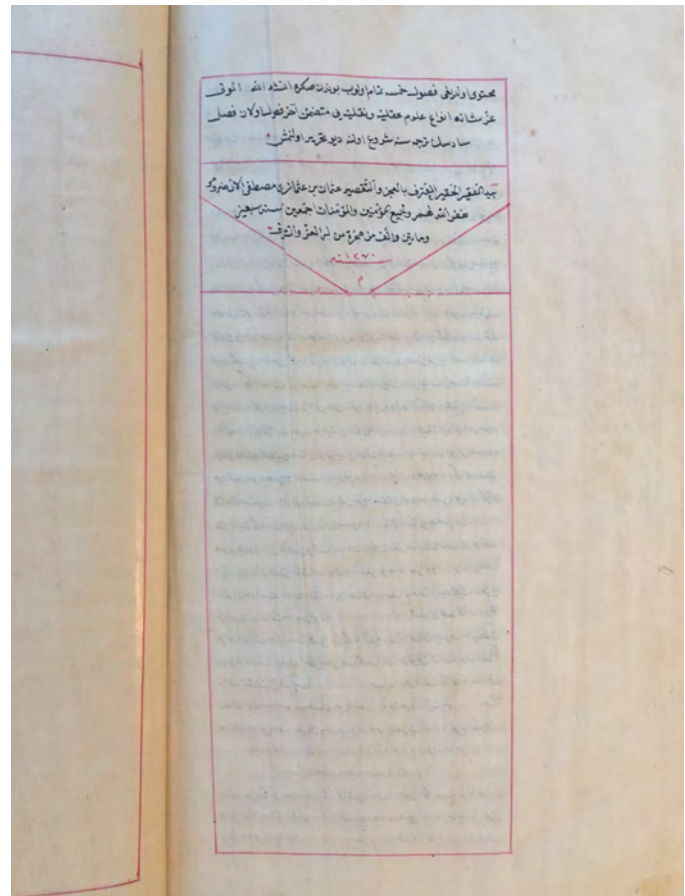 محتوی اولدیغی فصول خمس تمام اولوب بوندن صکره انشاء الله الموفق
عز شانه انواع علوم عقلیه و نقلیه یی متضمن آخر فصول اولان فصل
سادسك ترجمه سنه شروع اولنه دیو تحریر اولنمش
الفقیر الحقیر المعترف بالعجز والتقصیر عثمان بن عثمان بن مصطفی
غفر الله لهم ولجمیع المؤمنین والمؤمنات اجمعین سنه سبعین
ومایتین والف من هجرة من له العز والشرف
سنه ١٢٧٠
م